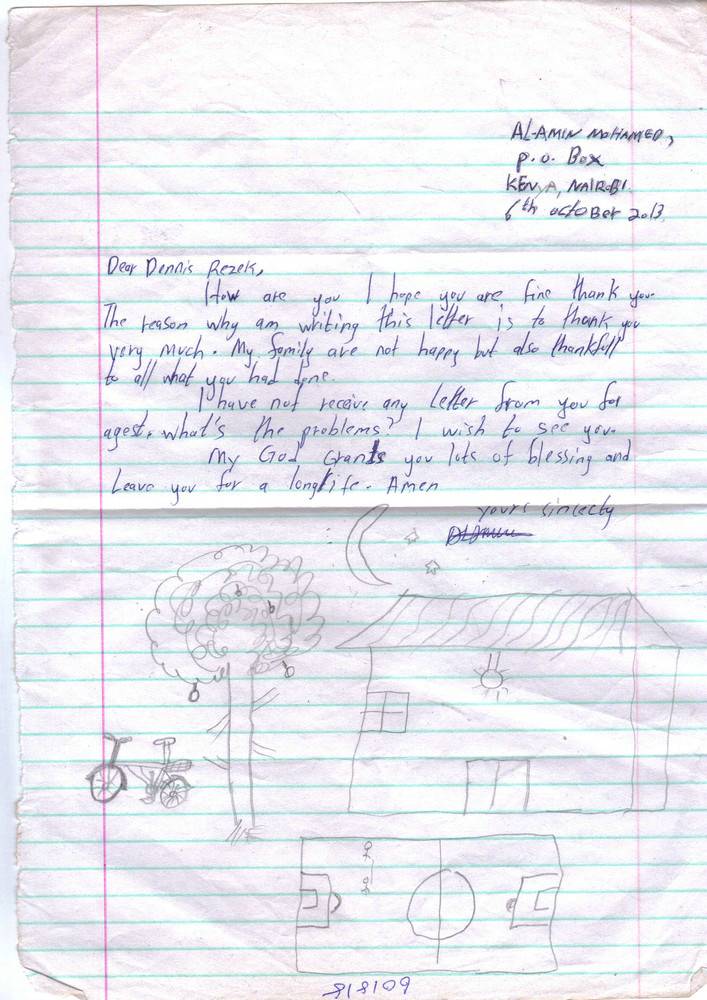 AL-AMIN MOHAMED,
P.O. Box
KENYA, NAIROBI.
6th october 2013.
Dear Dennis Rezek,
How are you I hope you are fine thank you.
The reason why am writing this letter is to thank you
very much. My family are not happy but also thankfull
to all what you had done.
I have not receive any letter from you for
agest. what's the problems? I wish to see you.
My God Grants you lots of blessing and
Leave you for a long life. Amen
yours sincerly